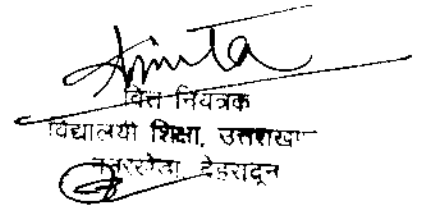 Amita
वित्त नियंत्रक
विद्यालयी शिक्षा, उत्तराखण
ननूरखेडा, देहरादून